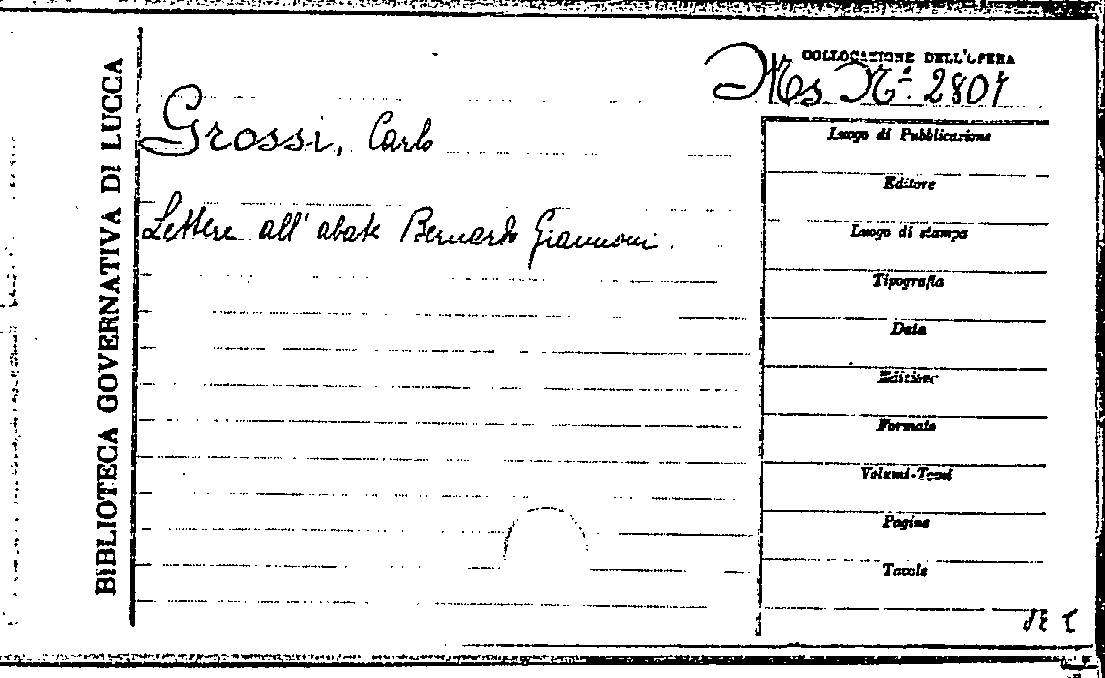 BIBLIOTECA GOVERNATIVA DI LUCCA
COLLOCAZIONE DELL'OPERA
Ms Nº. 2807
Grossi, Carlo
Lettere all' abate Bernardo Giannoni.
Luogo di Pubblicazione
Editore
Luogo di stampa
Tipografia
Data
Edizione
Formato
Volumi-Tomi
Pagine
Tavole